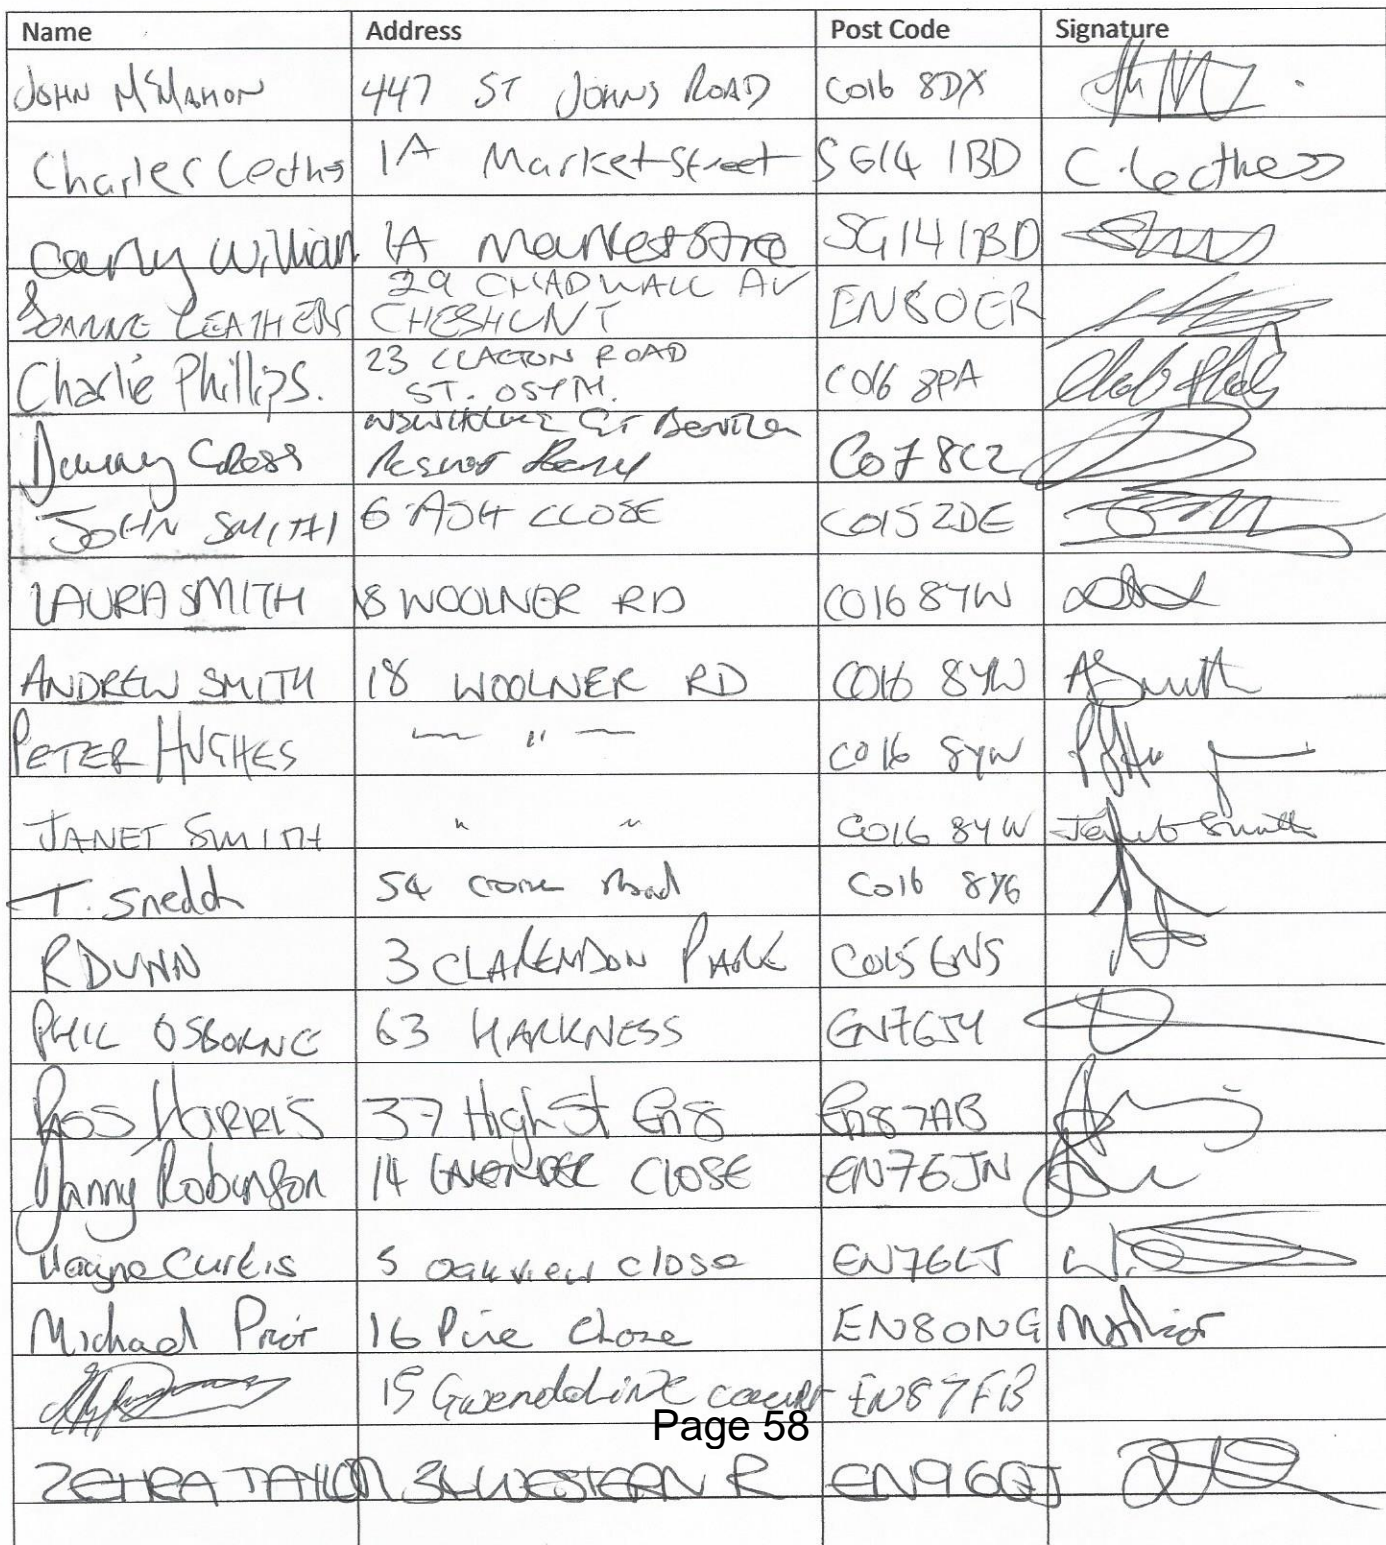 Name Address Post Code Signature
JOHN McMAHON 447 ST JOHNS ROAD CO16 8DX
Charles 1A Market Street SG14 1BD C.
Carly William 1A Market SG14 1BD
29 CHADWALL AV
LEATHERS CHESHUNT EN8 0ER
23 CLACTON ROAD
Charlie Phillips. ST. OSYTH. CO16 8PA
Danny Cross CO7 8CZ
JOHN SMITH 6 ASH CLOSE CO15 2DE
LAURA SMITH 18 WOOLNER RD CO16 8YW
ANDREW SMITH 18 WOOLNER RD CO16 8YW ASmith
PETER HUGHES — " — CO16 8YW
JANET SMITH " " CO16 8YW Janet Smith
T. 54 Road CO16 8YG
R DUNN 3 CLARENDON PARK CO15
PHIL OSBORNE 63 HARKNESS EN7 6JY
ROSS HARRIS 37 High St En8 En8 7AB
Danny Robinson 14 LAVENDER CLOSE EN7 6JN
Wayne Curtis 5 oakview close EN7 6LJ
Michael Prior 16 Pine Close EN8 0NG M Prior
15 Gwendoline court EN8 7FB
Page 58
ZEHRA TAYLOR 34 WESTERN R EN9 6QJ